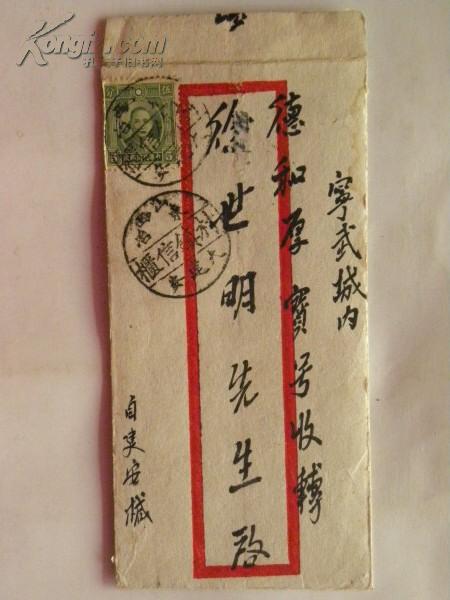 寧武城内
德和厚寶号收轉
徐世明先生啟
自吏安椷
村鎮信櫃
Kongfz.com
孔夫子旧书网
伍